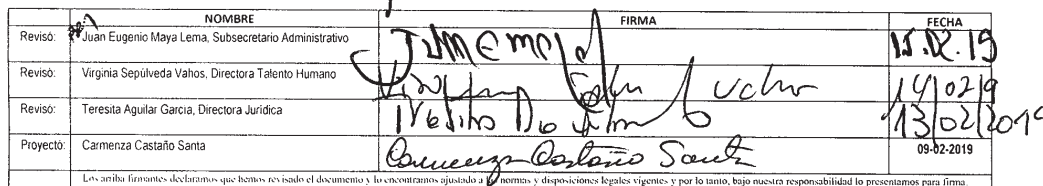 NOMBRE FIRMA FECHA
Revisó: Juan Eugenio Maya Lema, Subsecretario Administrativo 15.02.19
Revisó: Virginia Sepúlveda Vahos, Directora Talento Humano 14/02/9
Revisó: Teresita Aguilar García, Directora Jurídica 13/02/2019
Proyectó: Carmenza Castaño Santa Carmenza Castaño Santa 09-02-2019
Los arriba firmantes declaramos que hemos revisado el documento y lo encontramos ajustado a normas y disposiciones legales vigentes y por lo tanto, bajo nuestra responsabilidad lo presentamos para firma.